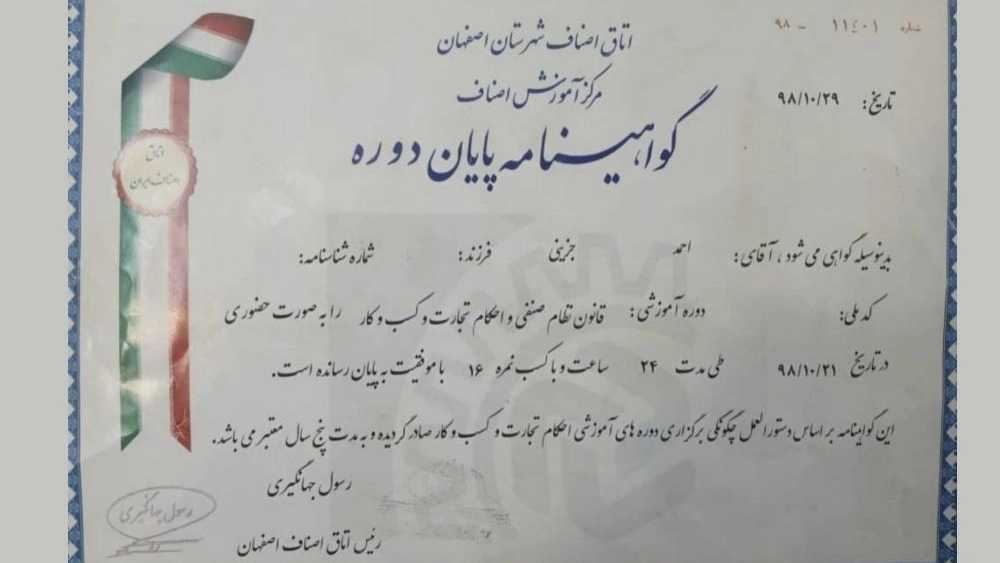 شماره ۱۱۴۰۱ - ۹۸
اتاق اصناف شهرستان اصفهان
مرکز آموزش اصناف
تاریخ: ۹۸/۱۰/۲۹
گواهینامه پایان دوره
اتاق
اصناف ایران
بدینوسیله گواهی می شود ، آقای: احمد جزینی فرزند: شماره شناسنامه:
کد ملی: دوره آموزشی: قانون نظام صنفی و احکام تجارت و کسب و کار را به صورت حضوری
در تاریخ ۹۸/۱۰/۲۱ طی مدت ۲۴ ساعت و با کسب نمره ۱۶ با موفقیت به پایان رسانده است.
این گواهینامه بر اساس دستورالعمل چگونگی برگزاری دوره های آموزشی احکام تجارت و کسب و کار صادر گردیده و به مدت پنج سال معتبر می باشد.
رسول جهانگیری
رئیس اتاق اصناف اصفهان
رسول جهانگیری